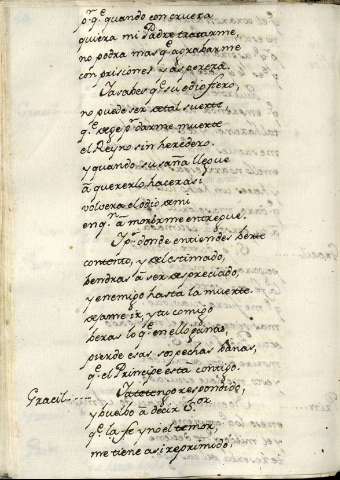 p.r q.e quando con crueza
quiera mi Padre tratarme,
no podra mas q.e agrabarme
con prisiones y aspereza.
Ya sabes q.e su odio fiero,
no puede ser de tal suerte,
q.e dexe p.r darme muerte
el Reyno sin heredero.
y quando su saña llegue
à quererlo hacer asi
volvera el odio de mi
en q.n à morirme entregue.
Y p.r donde entiendes berte
contento, y de el estimado,
bendras à ser despreciado,
y enemigo hasta la muerte.
Dexame ir, y tu comigo
beras lo q.e en ello ganas,
pierde esas sospechas banas,
q.e el Principe està contigo.
Gracil. Ya te tengo respondido,
y buelbo à decir S.or
q.e la fe y no el temor,
me tiene asi reprimido,